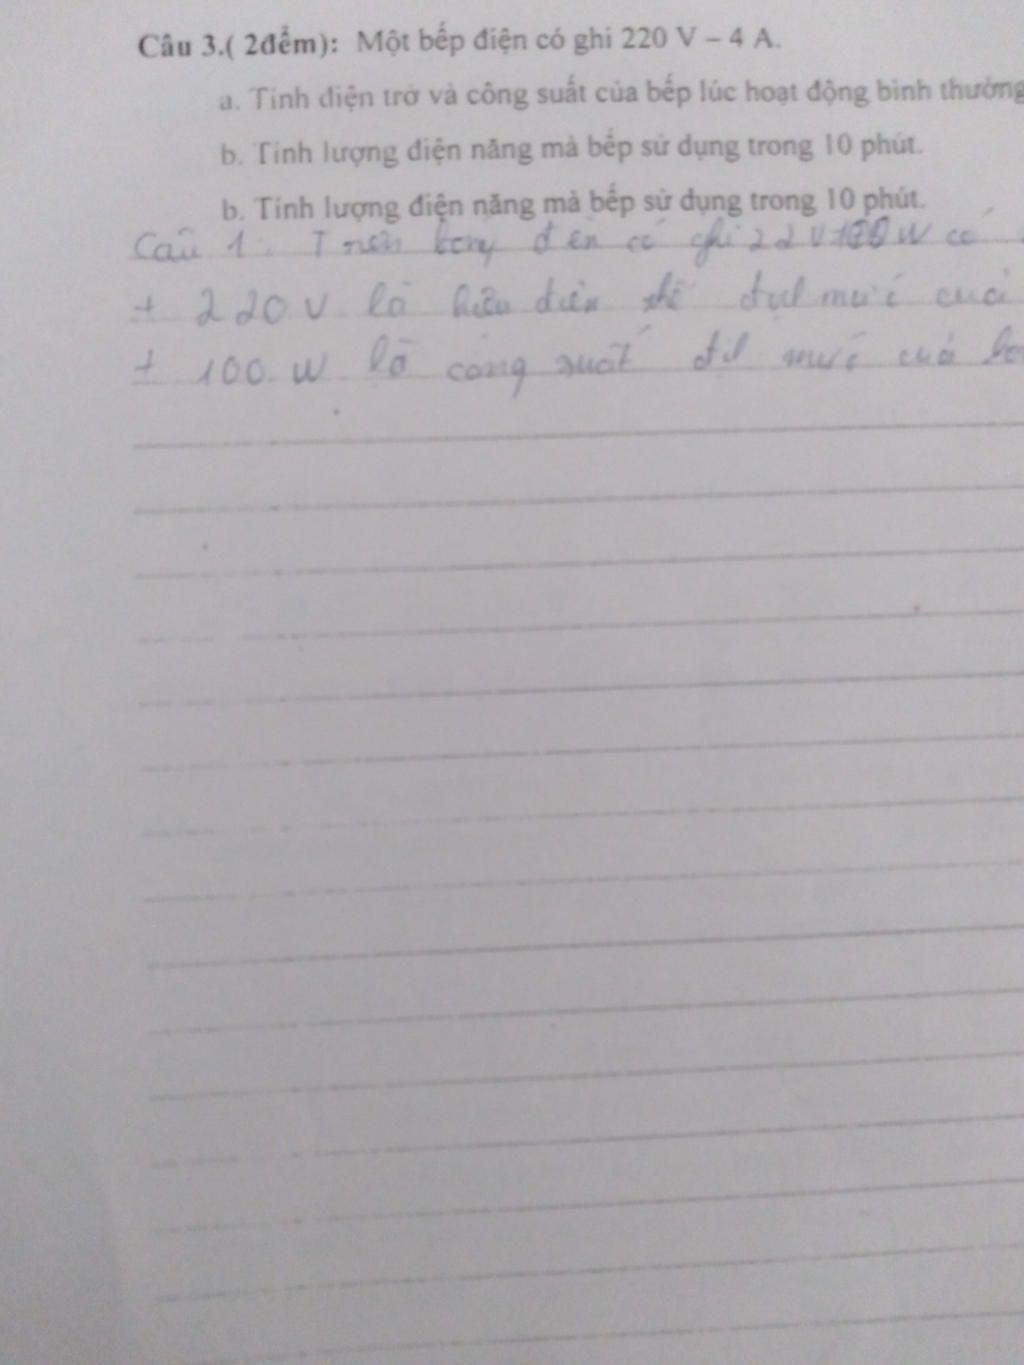 Câu 3.( 2đểm): Một bếp điện có ghi 220 V – 4 A.
a. Tính điện trở và công suất của bếp lúc hoạt động bình thường
b. Tính lượng điện năng mà bếp sử dụng trong 10 phút.
b. Tính lượng điện năng mà bếp sử dụng trong 10 phút.
Câu 1: Trên bóng đèn có ghi 100W có
+ 220V là hiệu điện thế định mức của
+ 100 W là công suất định mức của